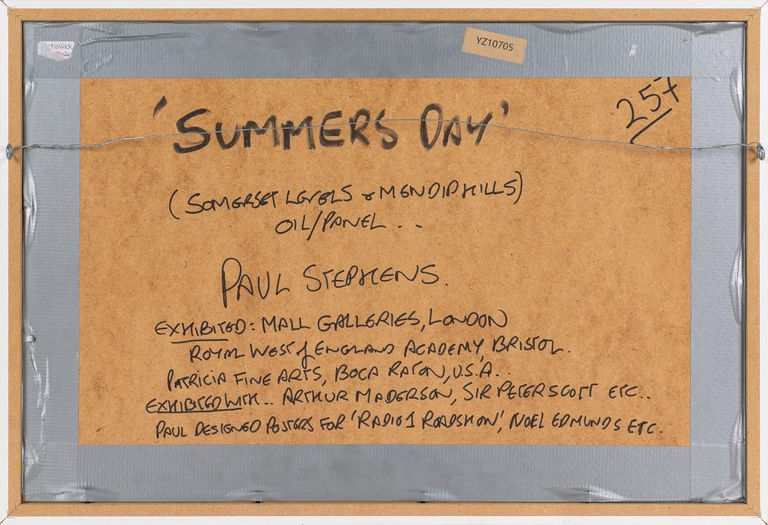 YZ10705
25+
'SUMMERS DAY'
(SOMERSET LEVELS & MENDIP HILLS)
OIL/PANEL...
PAUL STEPHENS.
EXHIBITED: MALL GALLERIES, LONDON
ROYAL WEST of ENGLAND ACADEMY, BRISTOL.
PATRICIA FINE ARTS, BOCA RATON, U.S.A...
EXHIBITED WITH.. ARTHUR MADERSON, SIR PETER SCOTT ETC..
PAUL DESIGNED POSTERS FOR 'RADIO 1 ROADSHOW', NOEL EDMUNDS ETC.